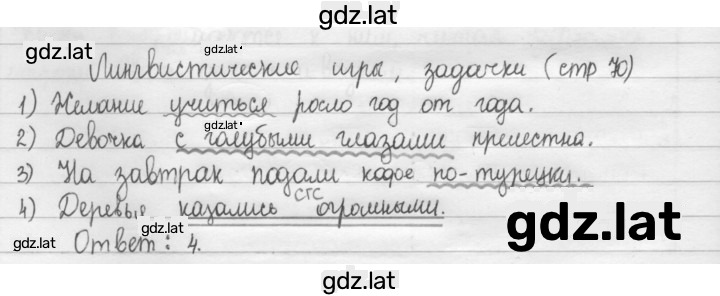 gdz.lat
gdz.lat gdz.lat
Лингвистические игры, задачки (стр 70)
1) Желание учиться росло год от года.
gdz.lat
2) Девочка с голубыми глазами прелестна.
3) На завтрак подали кофе по-турецки.
gdz.lat gdz.lat
СГС
4) Деревья казались огромными.
gdz.lat gdz.lat gdz.lat
Ответ: 4.
gdz.lat